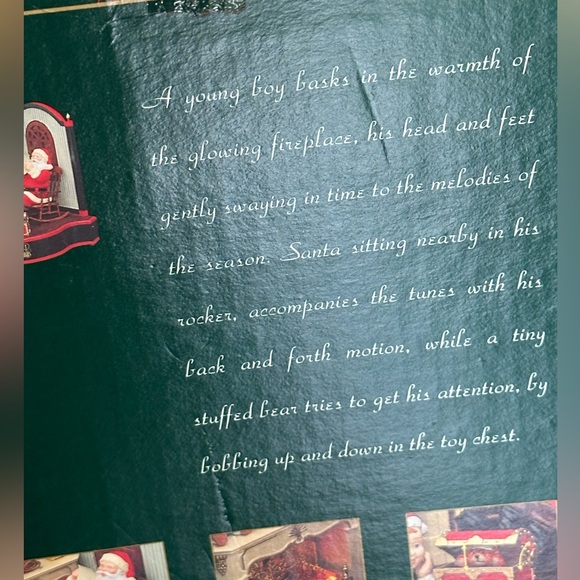 A young boy basks in the warmth of
the glowing fireplace, his head and feet
gently swaying in time to the melodies of
the season. Santa sitting nearby in his
rocker, accompanies the tunes with his
back and forth motion, while a tiny
stuffed bear tries to get his attention, by
bobbing up and down in the toy chest.